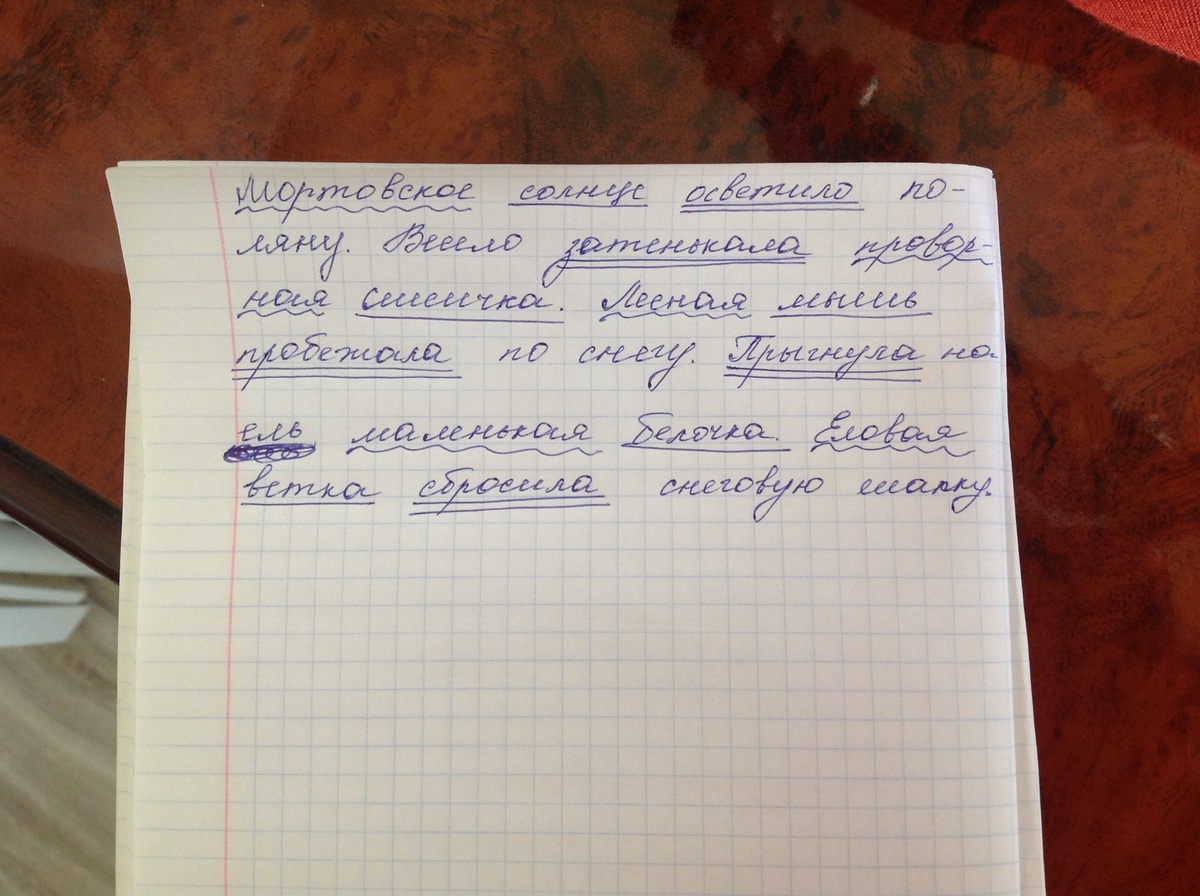 Мартовское солнце осветило по-
ляну. Весело затенькала провор-
ная синичка. Лесная мышь
пробежала по снегу. Прыгнула на
ель маленькая белочка. Еловая
ветка сбросила снеговую шапку.